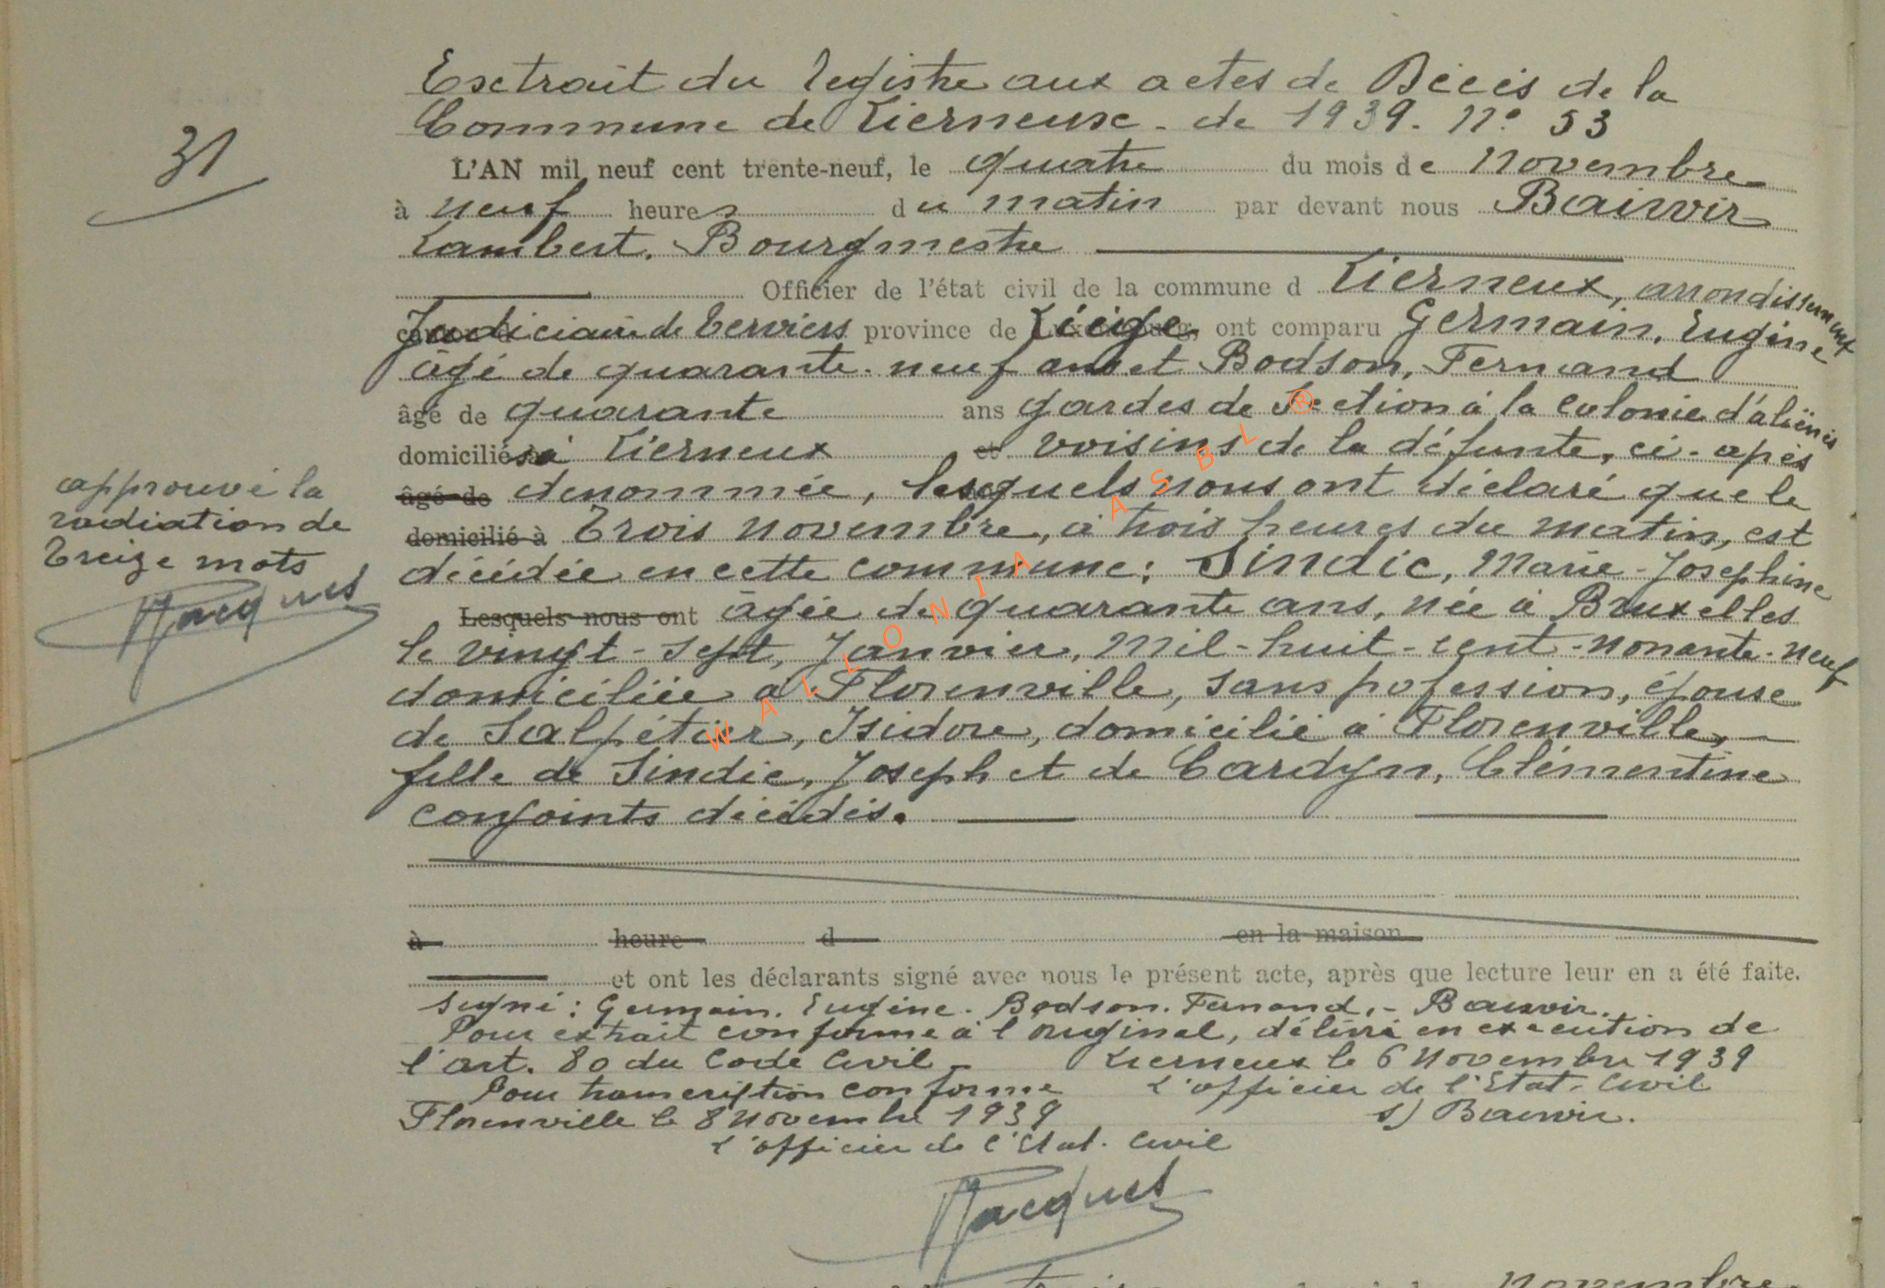 Extrait du registre aux actes de Décès de la
Commune de Lierneux. de 1939. N° 53
31
L'AN mil neuf cent trente-neuf, le quatre du mois de Novembre
à neuf heures du matin par devant nous
Lambert, Bourgmestre
Officier de l'état civil de la commune d Lierneux, arrondissement
Judiciaire de Verviers province de Liège, ont comparu Germain, Eugène
âgé de quarante-neuf ans et Bodson, Fernand
âgé de quarante ans gardes de Section à la Colonie d'aliénés
domiciliés à Lierneux et voisins de la défunte, ci-après
âgé de dénommée, lesquels nous ont déclaré que le
domicilié à Trois Novembre, à trois heures du matin, est
décédée en cette commune: Sindic, Marie-Josephine
Lesquels nous ont âgée de quarante ans, née à Bruxelles
le vingt-sept, Janvier, Mil-huit-cent-nonante-neuf
domiciliée à Florenville, sans profession, épouse
de Salpétier, Isidore, domicilié à Florenville,
fille de Sindic, Joseph et de Cardyn, Clémentine
conjoints décédés.
approuvé la
radiation de
Treize mots
Jacques
à heure d en la maison
et ont les déclarants signé avec nous le présent acte, après que lecture leur en a été faite.
Signé: Germain. Eugène. Bodson. Fernand.-
Pour extrait conforme à l'original, délivré en exécution de
l'art. 80 du Code Civil. Lierneux le 6 Novembre 1939
Pour transcription conforme L'officier de l'Etat-Civil
Florenville le 8 Novembre 1939 s)
L'officier de l'Etat-Civil
Jacques
novembre
WALLONIA ASBL ®